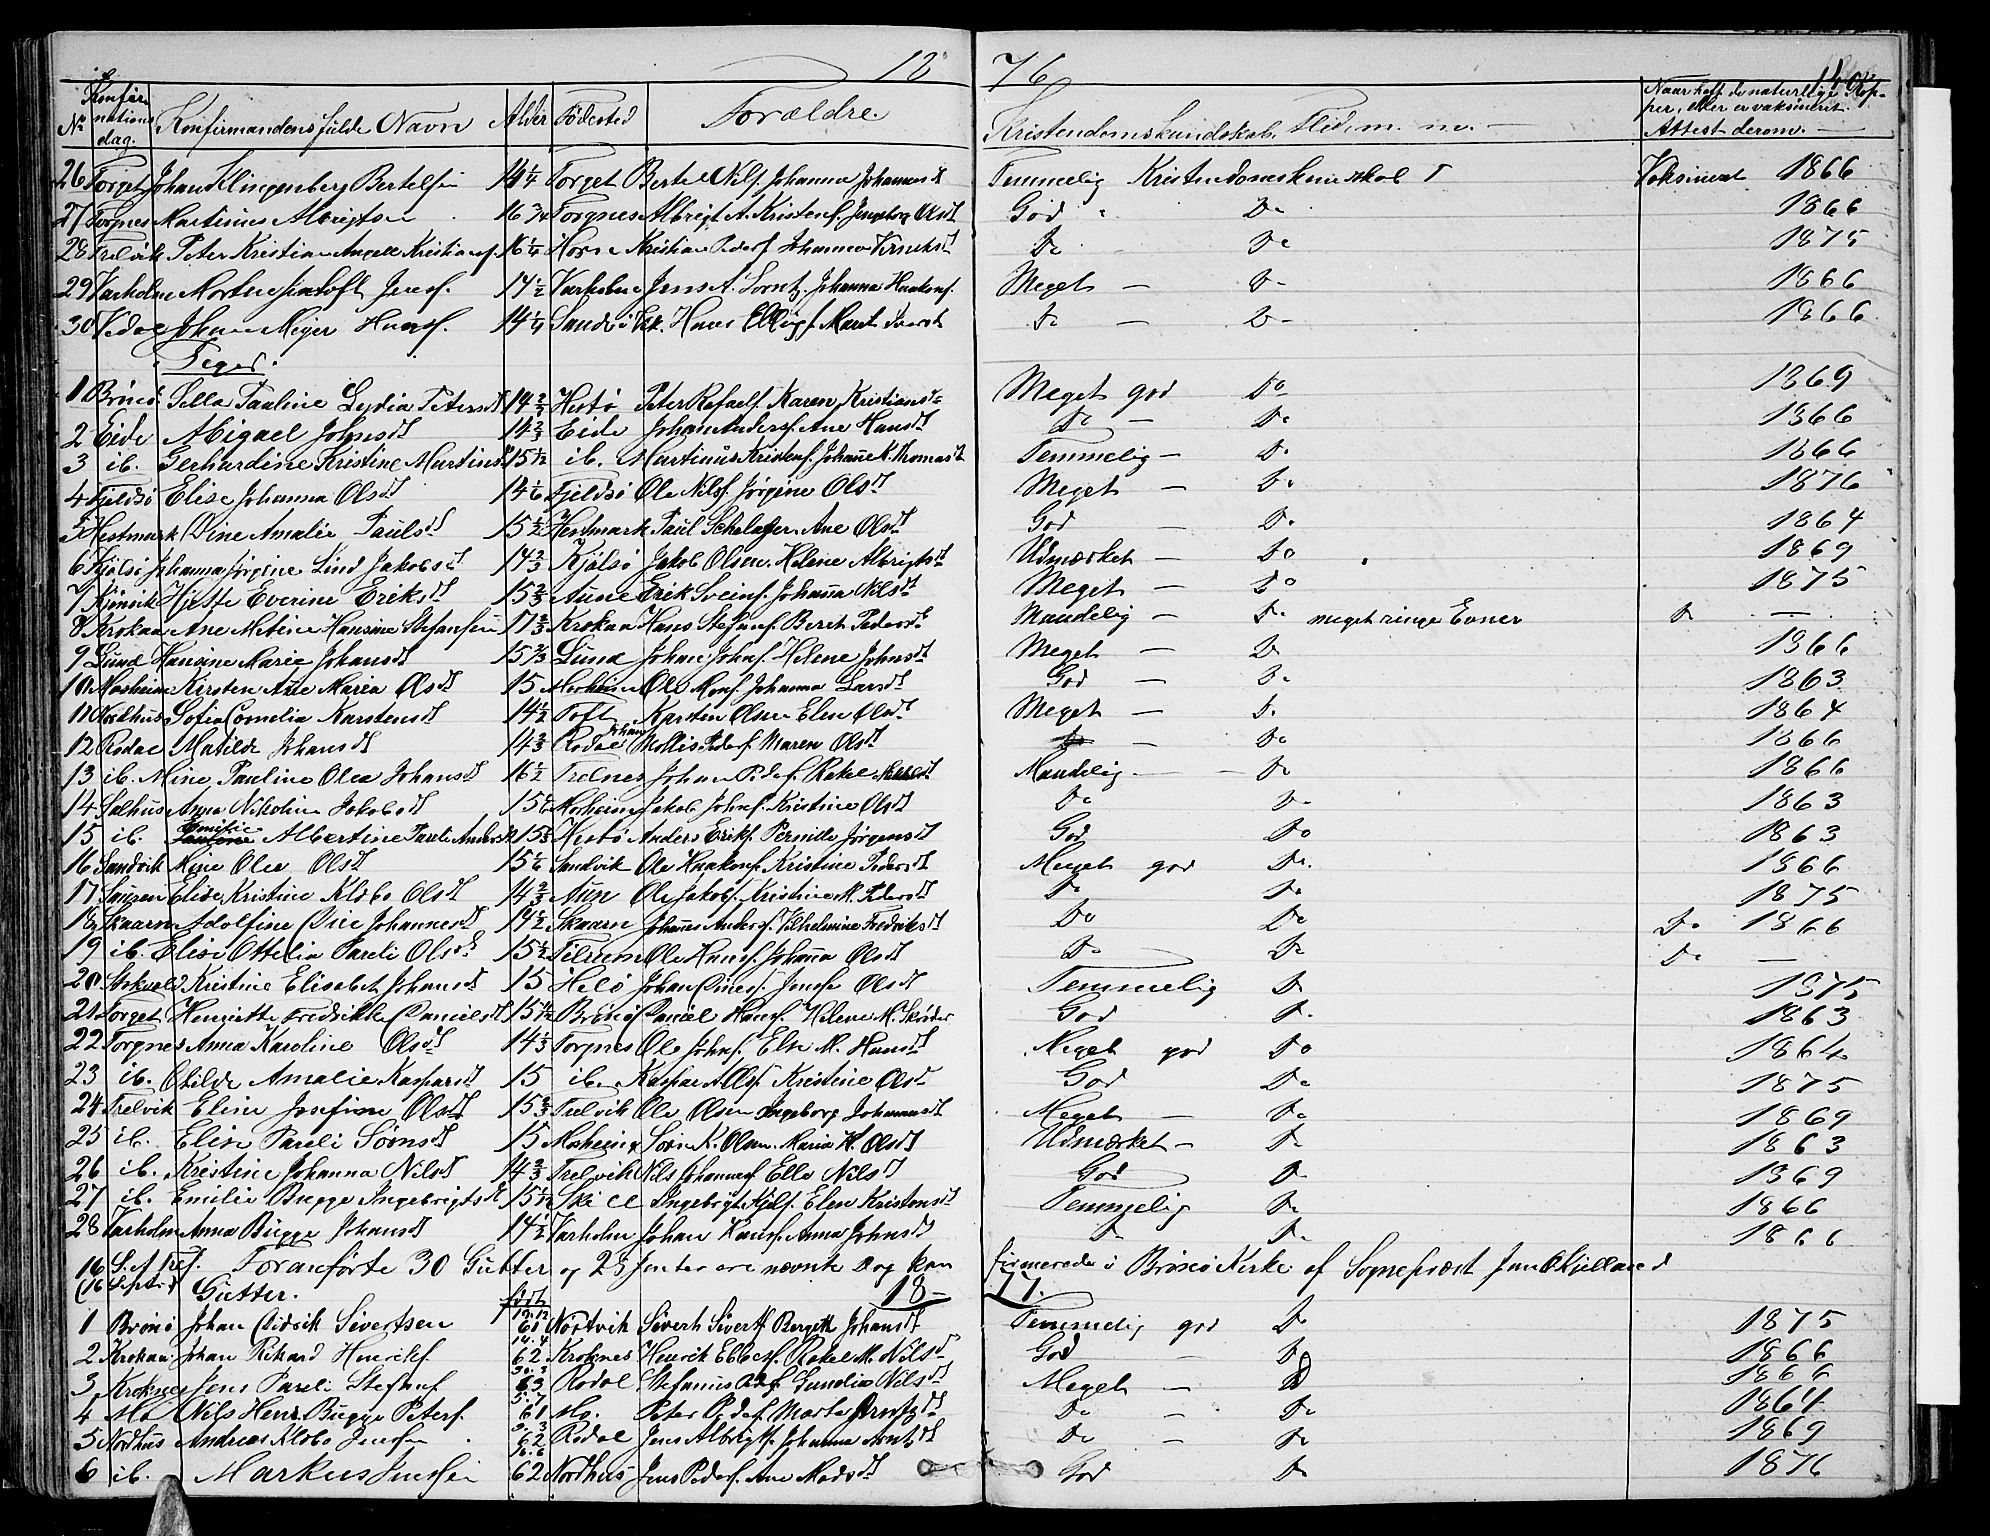 18 76
No Konfirmations dag. Konfirmandens fulde Navn Alder Fødested Forældre. Kristendomskundskab, Flid m. m. — Naar haft de naturlige Kopper, eller er vaksineret. Attest derom. —
26 Torget Johan Klingenberg Bertelsen 14 1/4 Torget Bertel Nils. Johanna Johannesdt Temmelig Kristendomskundskab Vaksineret 1866
27 Torgnes Martinus Albrigtsen 16 3/4 Torgnes Albrigt A. Kristens. Ingeborg Olsdt God Do 1866
28 Trelvik Peter Kristian Angell Kristians. 16 1/4 Horn Kristian Peders. Johanna Do Do 1875
29 Varholm Morten Jentoft Jens. 14 1/2 Varholm Jens A. Lorntz. Johanna Haakons. Meget — Do 1866
30 Johan Meyer Hans. 14 1/4 Hans Ellings. Marit Do — Do 1866
Piger.
1 Brønø Sella Pauline Lydia Petersdt 14 2/3 Hestø Peter Rafaels. Karen Kristiansdt Meget god Do 1869
2 Eide Abigael Johnsdt 14 2/3 Eide Johan Anders. Ane Hansdt Do — Do 1866
3 ib. Gerhardine Kristine Martinsdt 15 1/12 ib. Martinus Kristens. Johanne K. Thomasdt Temmelig — Do 1866
4 Fjeldsø Elise Johanna Olsdt 14 1/6 Fjeldsø Ole Nils. Jørgine Olsdt Meget — Do 1876
5 Hestmark Dine Amalie Paulsdt 15 1/2 Hestmark Paul Schelager Ane Olsdt God Do 1864
6 Kjølsø Johanna Jørgine Lind Jakobsdt 14 2/3 Kjølsø Jakob Olsen. Helene Albrigtsdt Udmærket — Do 1869
7 Hjette Everine Eriksdt 15 2/3 Aune Erik Sveins. Johanna Nilsdt Meget — Do 1875
8 Krokaa Ane Metine Hansine Stefansen 17 2/3 Krokaa Hans Stefans. Beret Pedersdt Maadelig — Do meget ringe Evner D —
9 Lund Hansine Marie Johansdt 15 2/3 Lund Johan Johns. Helene Johnsdt Meget — D 1866
10 Mosheim Kirsten Ane Maria Olsdt 15 Mosheim Ole Mons. Johanna Larsdt God — Do 1863
11 Nordhus Sofia Cornelia Karstensdt 14 1/2 Toft Karsten Olsen Elen Olsdt Meget — Do 1864
12 Rodal Matilde Johansdt 14 2/3 Rodal Johan Peders. Maren Olsdt — Do 1866
13 ib. Mine Pauline Olea Johansdt 16 1/2 Trelnes Johan Peders. Rakel Maadelig — Do 1866
14 Salhus Anna Nikoline Jakobsdt Mosheim Jakob Johns. Kristine Olsdt Do Do 1863
15 ib. Emilie Albertine Pareli Andersdt Hestø Anders Eriks. Pernille Jørgensdt God Do 1863
16 Sandvik Mine Olea Olsdt 15 1/6 Sandvik Ole Haakons. Kristine Pedersdt Meget god Do 1866
17 Elise Kristine Klæbo Olsdt 14 2/3 Aun Ole Jakobs. Kristine M. Pedersdt Do Do 1875
18 Skaarn Adolfine Dine Johannesdt 14 1/2 Skaarn Johannes Anders. Vilhelmine Fredriksdt Do Do Do 1866
19 ib. Elise Ottelia Pareli Olsdt 15 1/2 Tilrem Ole Hans. Johanna Olsdt Do Do Do —
20 Kristine Elisabet Johansdt 15 Johan Olsdt Temmelig Do 1875
21 Torget Henriette Fredrikke Danielsdt Brønø Daniel Hans. Helene M. Skrøder God Do 1863
22 Torgnes Anna Karoline Olsdt 14 1/3 Torgnes Ole Johns. Else M. Hansdt Meget god Do 1864
23 ib. Otilde Amalie Kaspersdt 15 ib. Kasper A. Ols. Kristine Olsdt God Do 1875
24 Trelvik Eline Josefine Olsdt 15 2/3 Trelvik Ole Olsen Ingeborg Johannesdt Meget — Do 1869
25 ib. Elise Pareli Sørnsdt 15 Mosheim Sørn K. Olsen. Maria H. Olsdt Udmærket — Do 1863
26 ib. Kristine Johanna Nilsdt 14 2/3 Trelvik Nils Johannes. Elle Nilsdt God Do 1869
27 ib. Emilie Bugge Ingebrigtsdt 15 1/12 Ingebrigt Elen Kristensdt Temmelig Do 1866
28 Varholm Anna Bugge Johansdt 14 1/2 Varholm Johan Hans. Anna Johnsdt Do Do 1866
Foranførte 30 Gutter og 28 Jenter ere nævnte Dag konfirmerede i Brønø Kirke af Sogneprest Jens Kjelland
16 Septbr Gutter. født 18 — 77.
1 Brønø Johan Didrik Sivertsen 12.12 61 Nortvik Sivert Siverts. Bergete Johansdt Temmelig god Do 1875
2 Krokaa Johan Rikard Henriks. 14.4 62 Kroknes Henrik Ebbes. Rakel M. Nilsdt God — Do 1866
3 Kroknes Jens Pareli Stefans. 63 Rodal Stefanus Gunelia Nilsdt Meget — D 1866
4 Mo Nils Henr. Bugge Peters. 5.7 61 Mo. Peter Peders. Marta Arntzdt Do — Do 1864
5 Nordhus Andreas Klæbo Jensen 62 Rodal Jens Albrigts. Johanna Arntzdt Do — Do 1869
6 ib. Markus Jenssen 62 Nordhus Jens Peders. Ane Madsdt God Do 1876